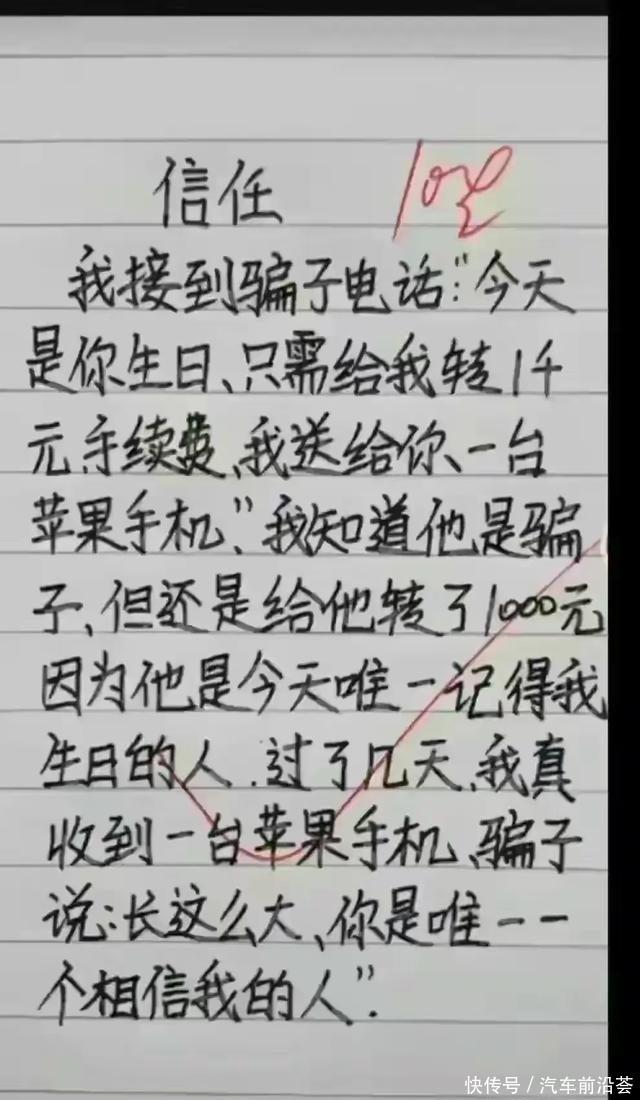 信任
我接到骗子电话:“今天
是你生日、只需给我转1千
元手续费、我送给你、一台
苹果手机”、我知道他是骗
子、但还是给他转了1000元
因为他是今天唯一记得我
生日的人.过了几天、我真
收到一台苹果手机、骗子
说:长这么大、你是唯一一
个相信我的人”.
快传号/汽车前沿荟